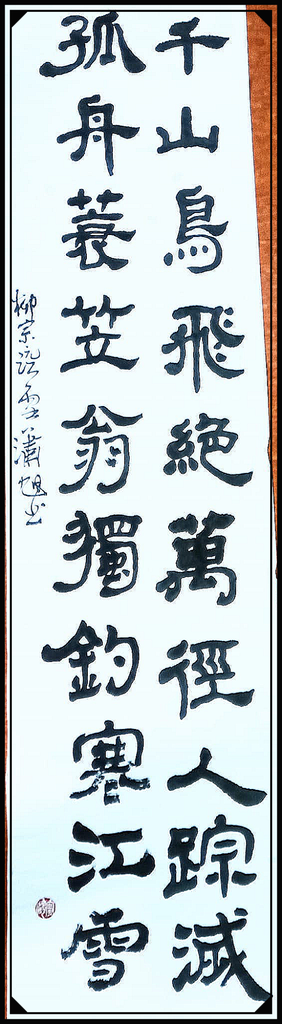 千山鳥飛絕萬徑人踪滅
孤舟蓑笠翁獨釣寒江雪
柳宗元